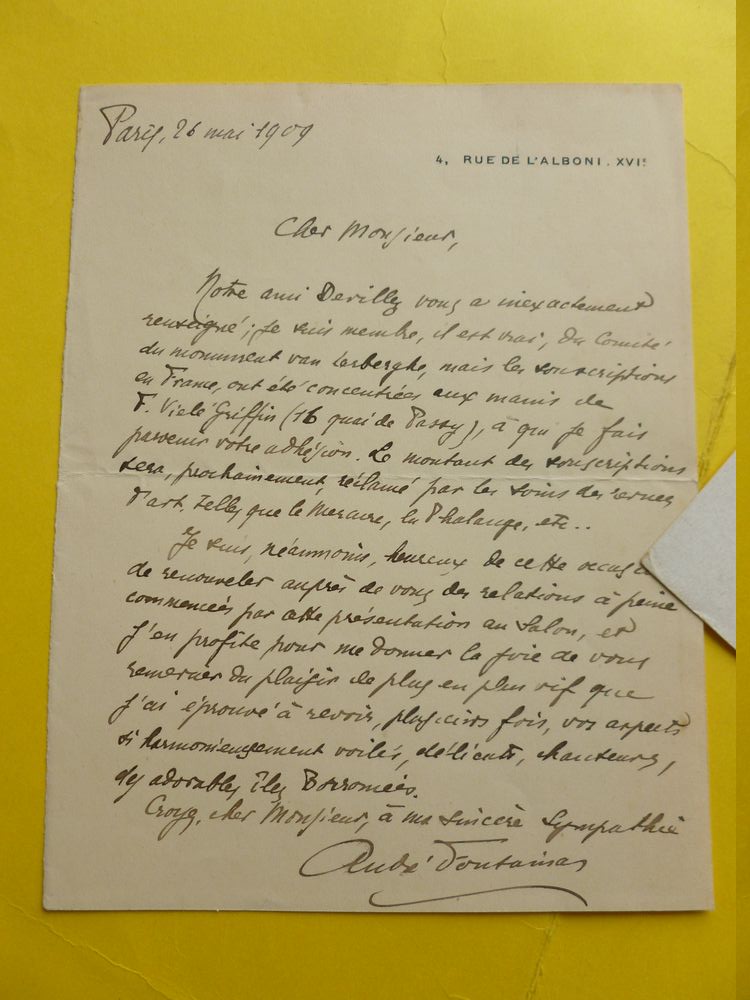 Paris, 26 mai 1909
4, RUE DE L'ALBONI. XVIe
Cher Monsieur,
Notre ami Devilly vous a inexactement
renseigné; je suis membre, il est vrai, du Comité
du monument van Lerberghe, mais les souscriptions
en France, ont été concentrées aux mains de
F. Vielé Griffin (16 quai de Passy), à qui je fais
parvenir votre adhésion. Le montant des souscriptions
sera, prochainement, réclamé par les soins des revues
d'art, telles que le Mercure, la Phalange, etc..
Je suis, néanmoins, heureux de cette
de renouveler auprès de vous des relations à peine
commencées par cette présentation au Salon, et
j'en profite pour me donner la joie de vous
remercier du plaisir de plus en plus vif que
j'ai éprouvé à revoir, plusieurs fois, vos aspects
si harmonieusement voilés, délicats, chanteurs,
des adorables îles Borromées.
Croyez, cher Monsieur, à ma sincère sympathie
André Fontainas